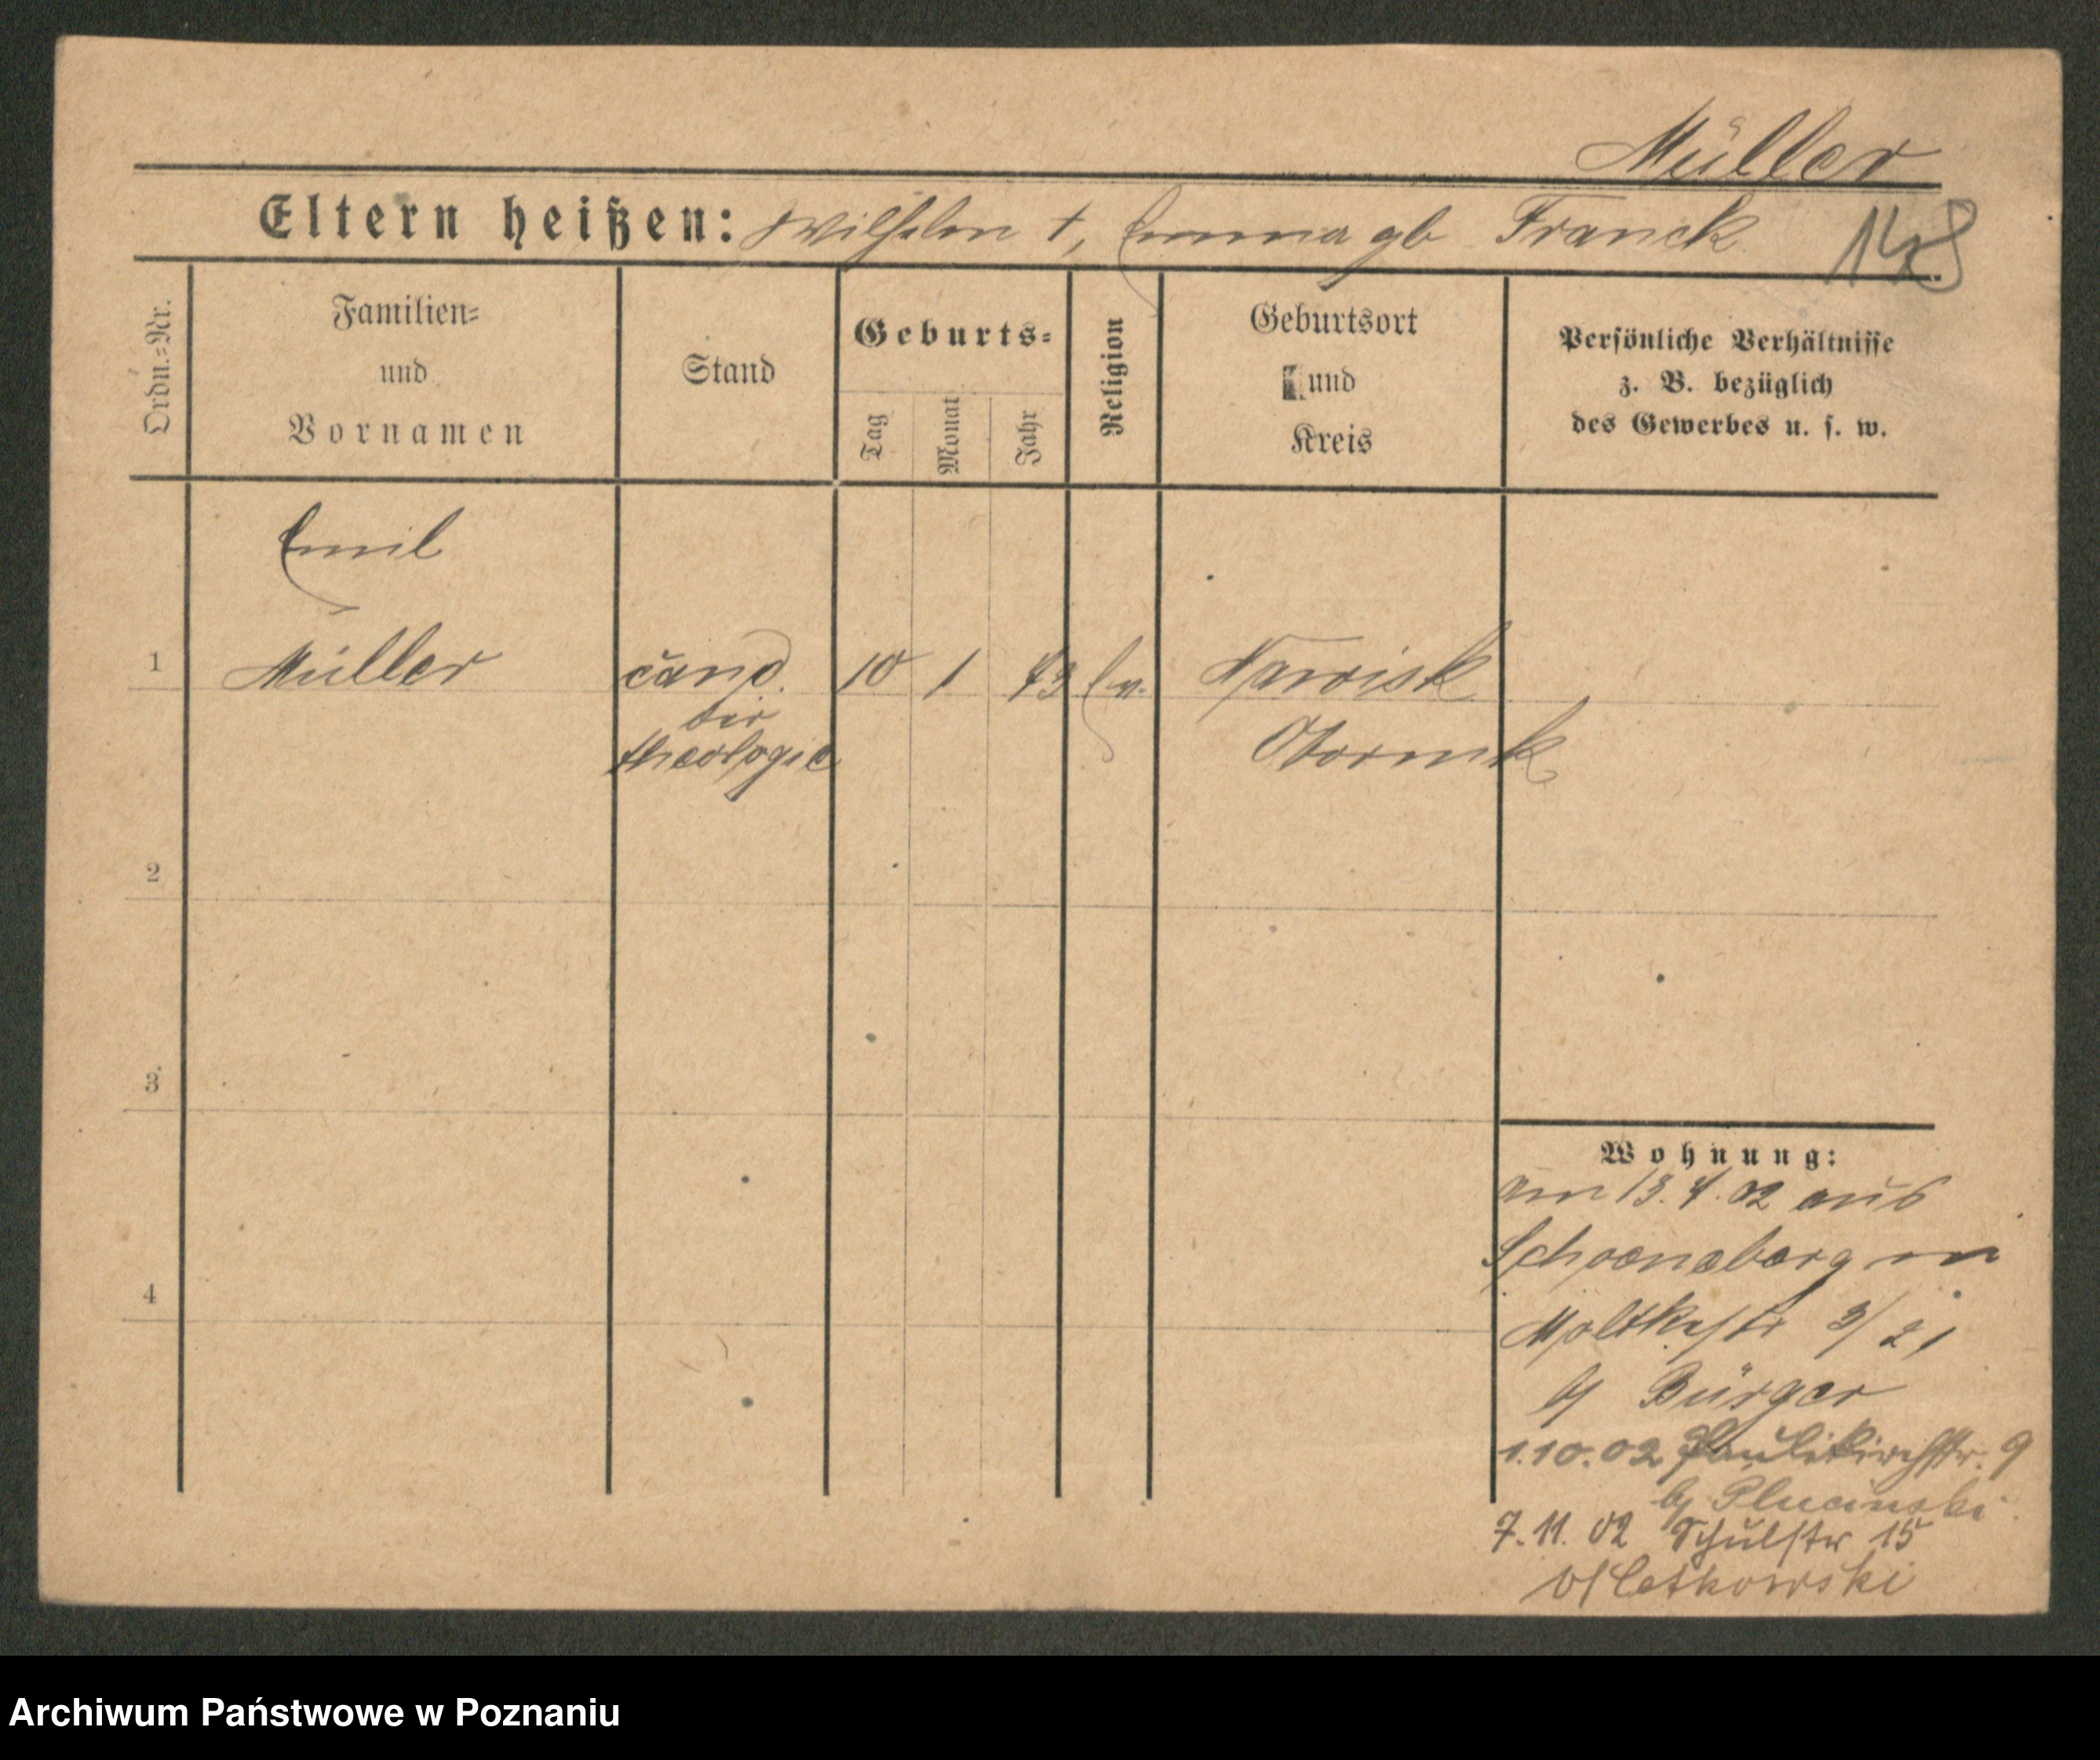 Müller
Eltern heißen: Wilhelm †, Emma gb Franck
148
Ordn.=Nr.
Familien=
und
Vornamen
Stand
Geburts=
Tag
Monat
Jahr
Religion
Geburtsort
und
Kreis
Persönliche Verhältnisse
z. B. bezüglich
des Gewerbes u. s. w.
Emil
1 Müller cand. 10 1 73 Ev.
der Obornik
theologie
2
3.
4
Wohnung:
am 13. 4. 02 aus
Schoeneberg
Moltkestr 3/21
b/ Bürger
1.10.02 Paulikirchstr. 9
b/ Plucinski
7.11.02 Schulstr 15
Letkowski
Archiwum Państwowe w Poznaniu